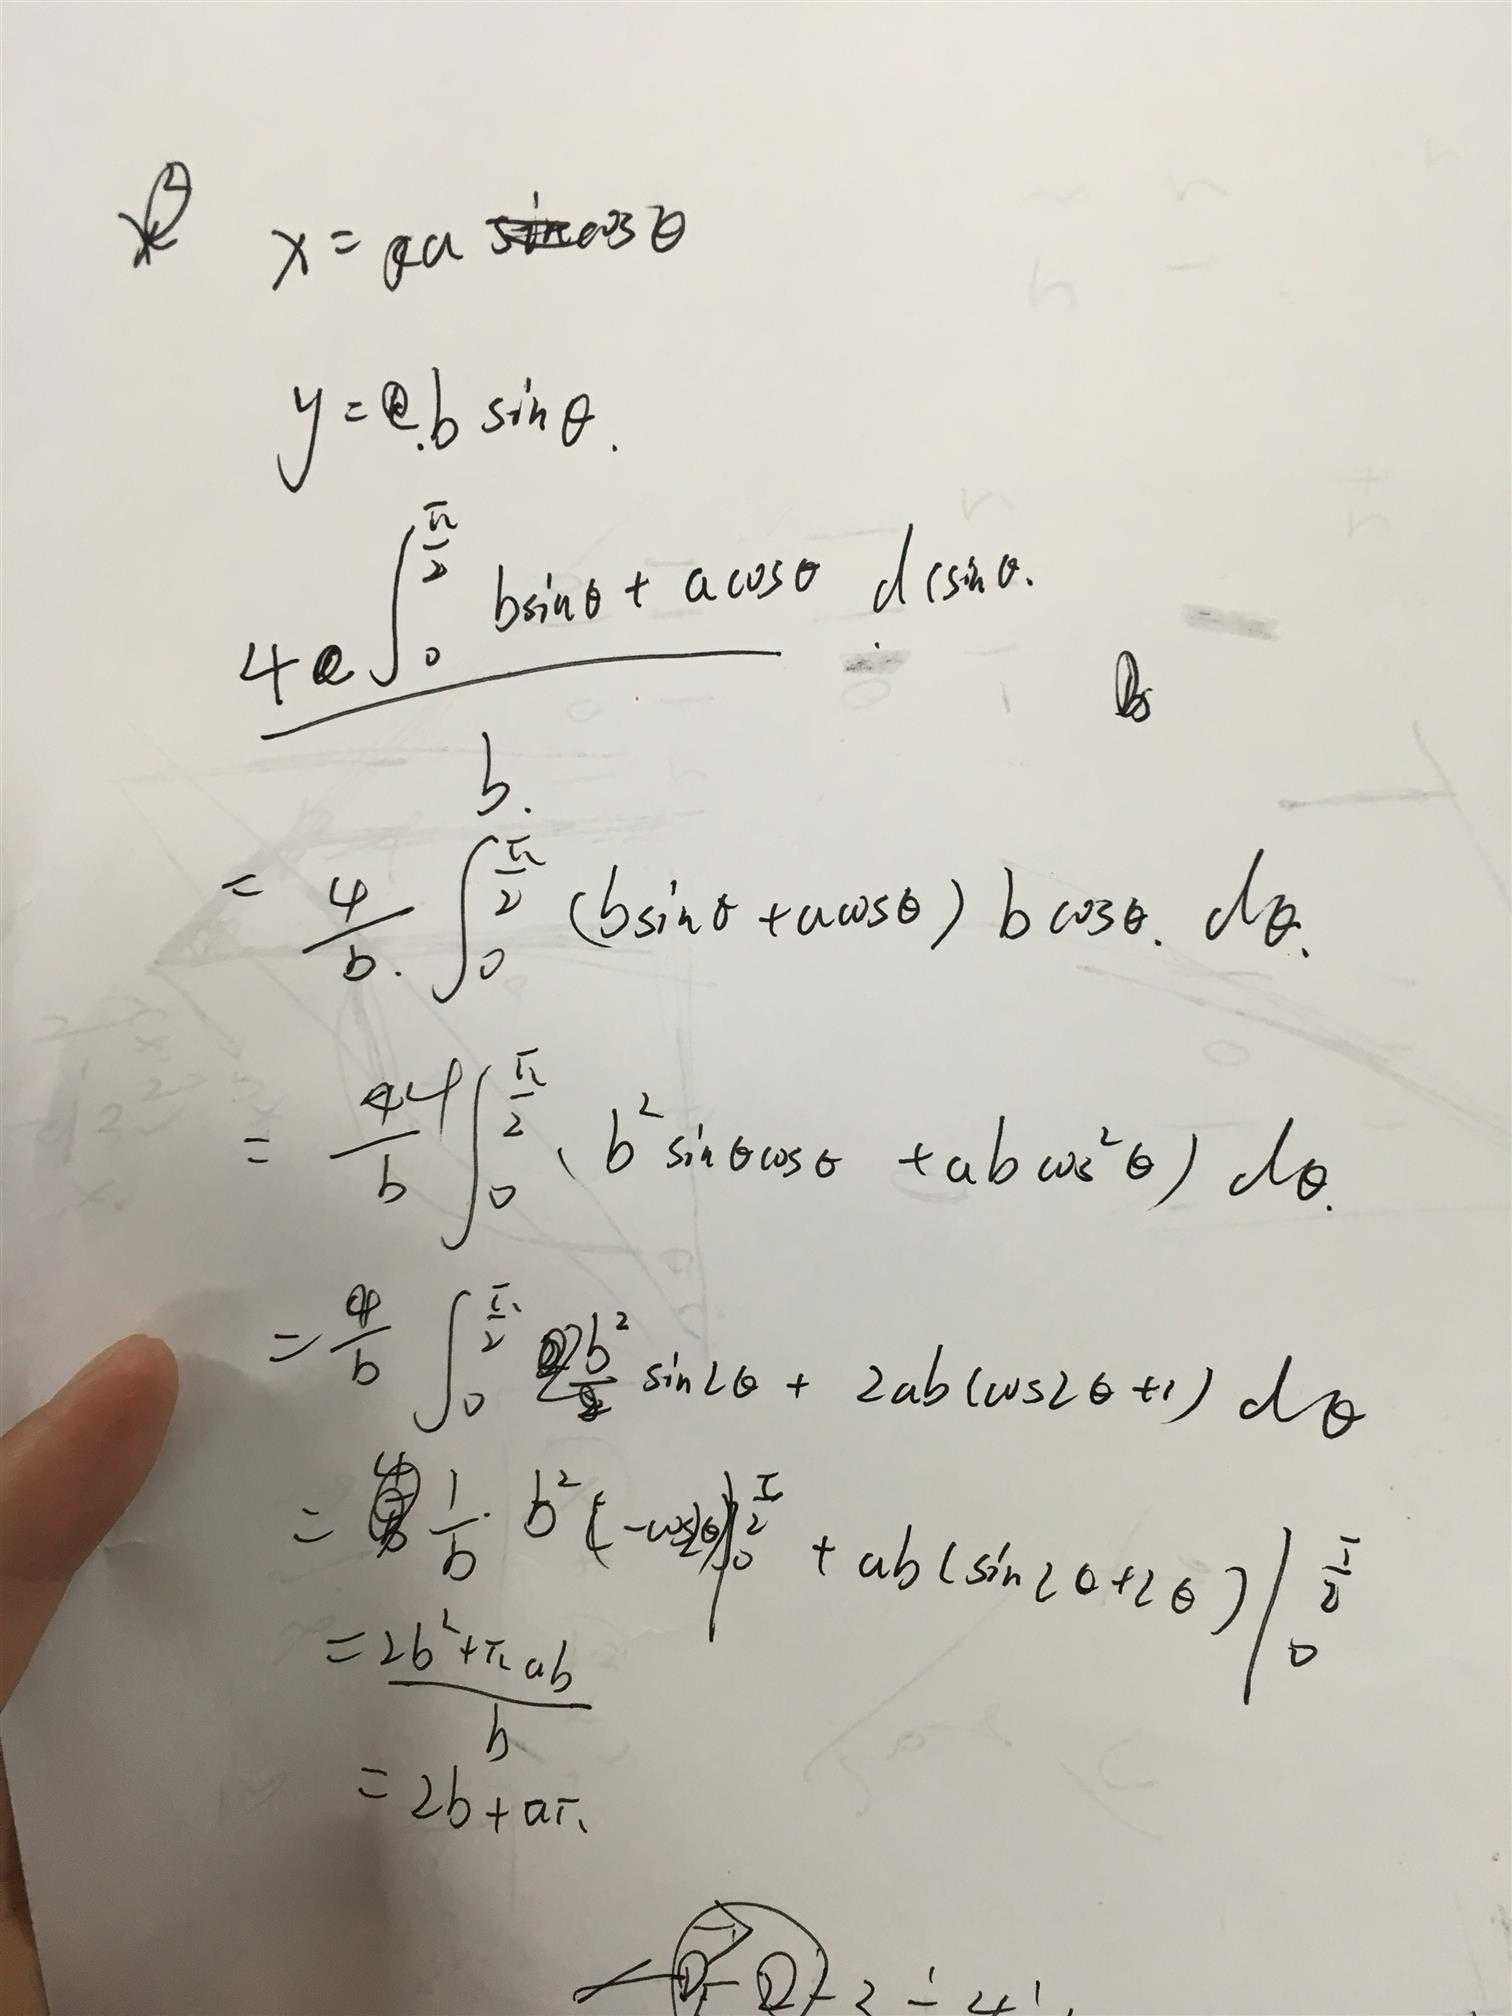 x = a cosθ
y = b sinθ.
4 ∫₀^(π/2) bsinθ + a cosθ d(sinθ.
b.
= 4/b. ∫₀^(π/2) (bsinθ + acosθ) b cosθ. dθ.
= 4/b ∫₀^(π/2) ( b² sinθcosθ + ab cos²θ) dθ.
= 4/b ∫₀^(π/2) sin2θ + 2ab(cos2θ+1) dθ
= 1/b · b² (-cos2θ)|₀^(π/2) + ab(sin2θ+2θ)|₀^(π/2)
= (2b²+πab)/b
= 2b+aπ